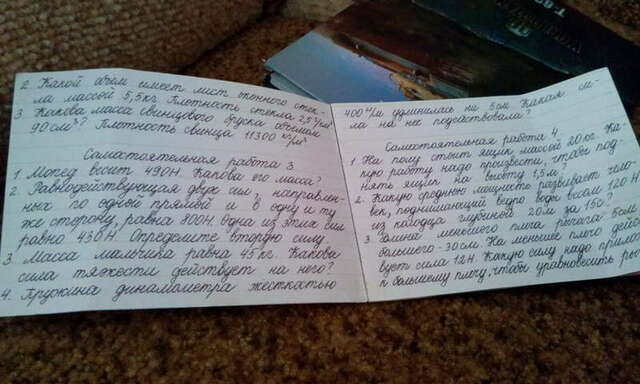 2. Какой объем имеет лист оконного стек-
ла массой 5,5кг. Плотность стекла 2,5 г/см³
3. Какова масса свинцового бруска объемом
90см³? Плотность свинца 11300 кг/м³
Самостоятельная работа 3
1. Мопед весит 490Н. Какова его масса?
2. Равнодействующая двух сил, направлен-
ных по одной прямой и в одну и ту
же сторону, равна 800Н. Одна из этих сил
равна 430Н. Определите вторую силу.
3. Масса мальчика равна 45кг. Какова
сила тяжести действует на него?
4. Пружина динамометра жесткостью
400 Н/м удлинилась на 5см. Какая си-
ла на нее подействовала?
Самостоятельная работа 4
1. На полу стоит ящик массой 20кг. Ка-
кую работу надо произвести, чтобы под-
нять ящик на высоту 1,5м?
2. Какую среднюю мощность развивает чело-
век, поднимающий ведро воды весом 120Н
из колодца глубиной 20м за 15с?
3. Длина меньшего плеча рычага 5см
большего - 30см. На меньшее плечо дейс
вует сила 12Н. Какую силу надо прило
к большему плечу, чтобы уравновесить ры